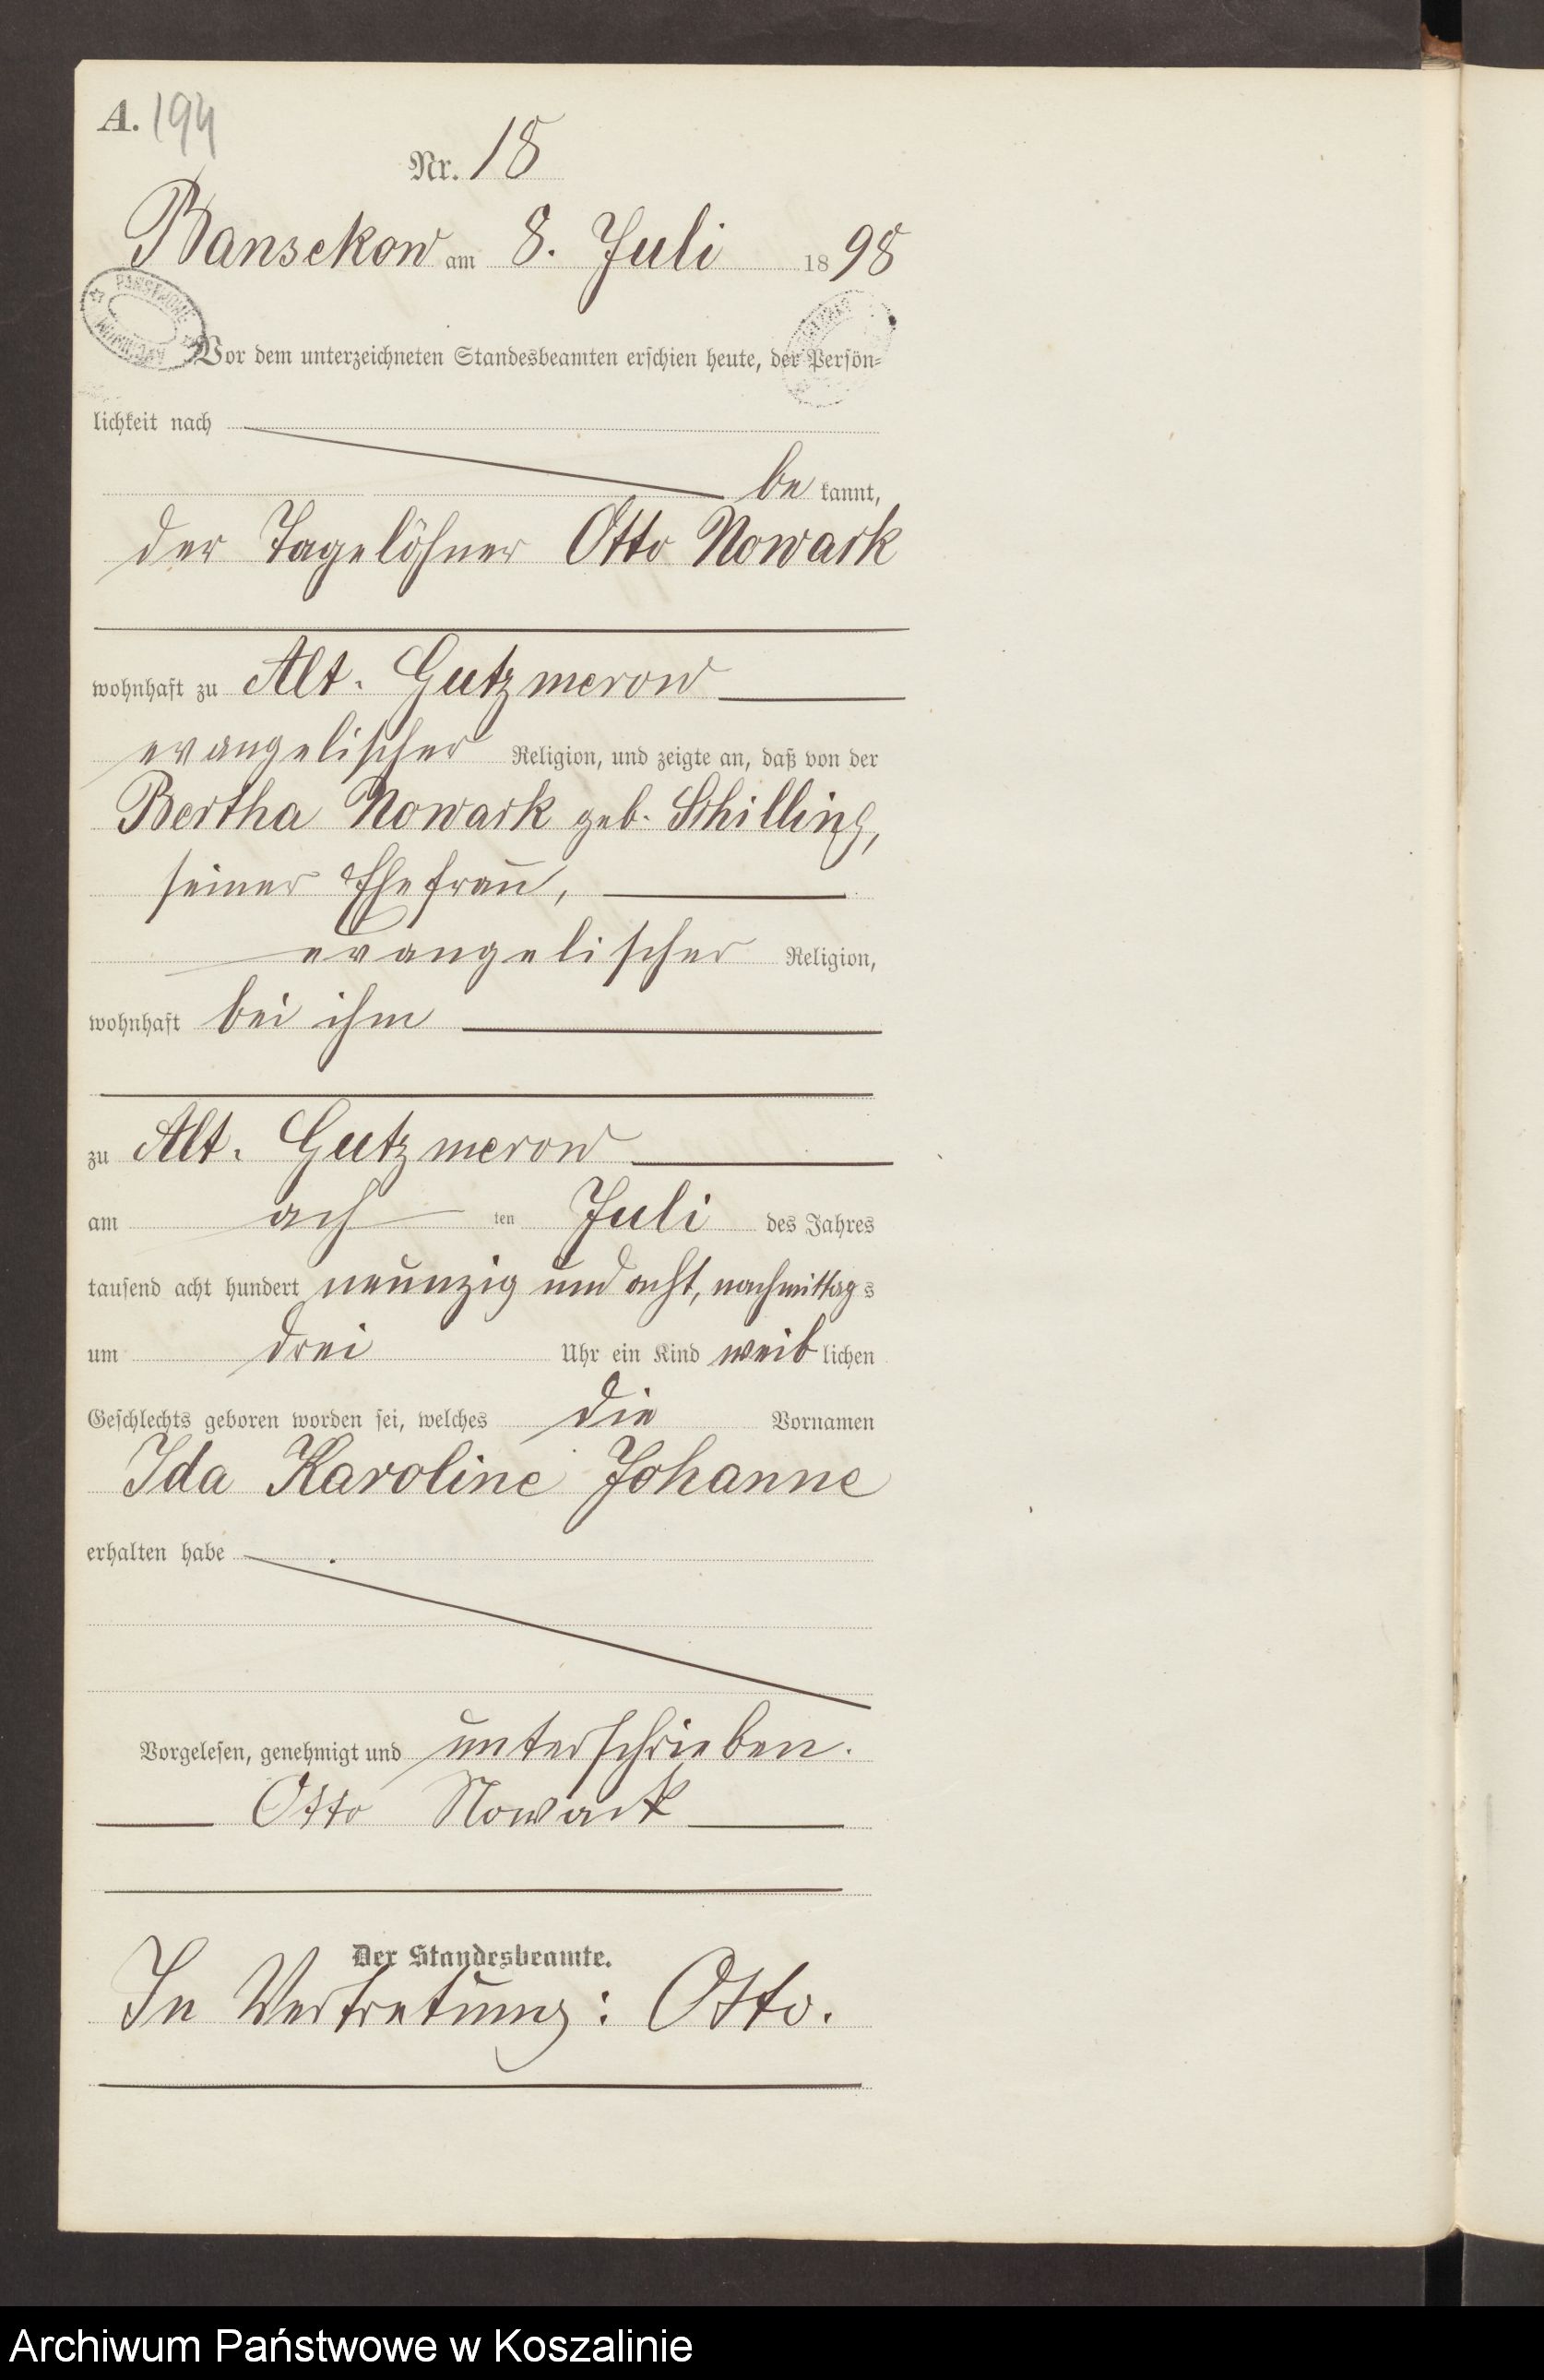 A. 194
Nr. 18
Bansekow am 8. Juli 1898
PAŃSTWOWE ARCHIWUM
Vor dem unterzeichneten Standesbeamten erschien heute, der Persön=
lichkeit nach
be kannt,
der Tagelöhner Otto Nowark
wohnhaft zu Alt. Gutzmerow
evangelischer Religion, und zeigte an, daß von der
Bertha Nowark geb. Schilling,
seiner Ehefrau,
evangelischer Religion,
wohnhaft bei ihm
zu Alt. Gutzmerow
am ach ten Juli des Jahres
tausend acht hundert neunzig und acht, nachmittags
um drei Uhr ein Kind weib lichen
Geschlechts geboren worden sei, welches die Vornamen
Ida Karoline Johanne
erhalten habe
Vorgelesen, genehmigt und unterschrieben.
Otto Nowark
Der Standesbeamte.
In Vertretung: Otto.
Archiwum Państwowe w Koszalinie